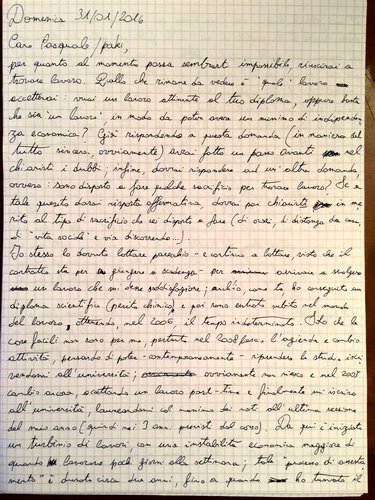 Domenica 31/01/2016
Caro Pasquale/paki,
per quanto al momento possa sembrarti impossibile, riuscirai a
trovare lavoro. Quello che rimane da vedere è "quale" lavoro
accetterai: vuoi un lavoro attinente al tuo diploma, oppure basta
che sia "un lavoro" in modo da poter avere un minimo di indipenden
za economica? Già rispondendo a questa domanda (in maniera del
tutto sincera, ovviamente) avrai fatto un passo avanti nel
chiarirti i dubbi; infine, dovrai rispondere ad un'altra domanda,
ovvero: sono disposto a fare qualche sacrificio per trovare lavoro? Se a
tale quesito darai risposta affermativa, dovrai poi chiarirti in me
rito al tipo di sacrificio che sei disposto a fare (di orari, di distanza da casa,
di "vita sociale" e via discorrendo...).
Io stesso ho dovuto lottare parecchio - e continuo a lottare, visto che il
contratto sta per giungere a scadenza - per arrivare a svolgere
un lavoro che mi desse soddisfazione; anch'io, come te ho conseguito un
diploma scientifico (perito chimico) e poi sono entrato subito nel mondo
del lavoro, ottenendo, nel 2006, il tempo indeterminato. Ma che le
cose facili non sono per me, pertanto nel 2008 lascio l'azienda e cambio
attività, pensando di poter - contemporaneamente - riprendere lo studio, iscri
vendomi all'università; ovviamente non riesco e nel 2008
cambio ancora, accettando un lavoro part-time e finalmente mi iscrivo
all'università, laureandomi col massimo dei voti all'ultima sessione
del mio anno (quindi nei 3 anni previsti dal corso). Da qui è iniziato
un turbinio di lavori, con una instabilità economica maggiore di
quando lavoravo pochi giorni alla settimana; tale processo di assesta
mento è durato circa due anni, fino a quando ho trovato il